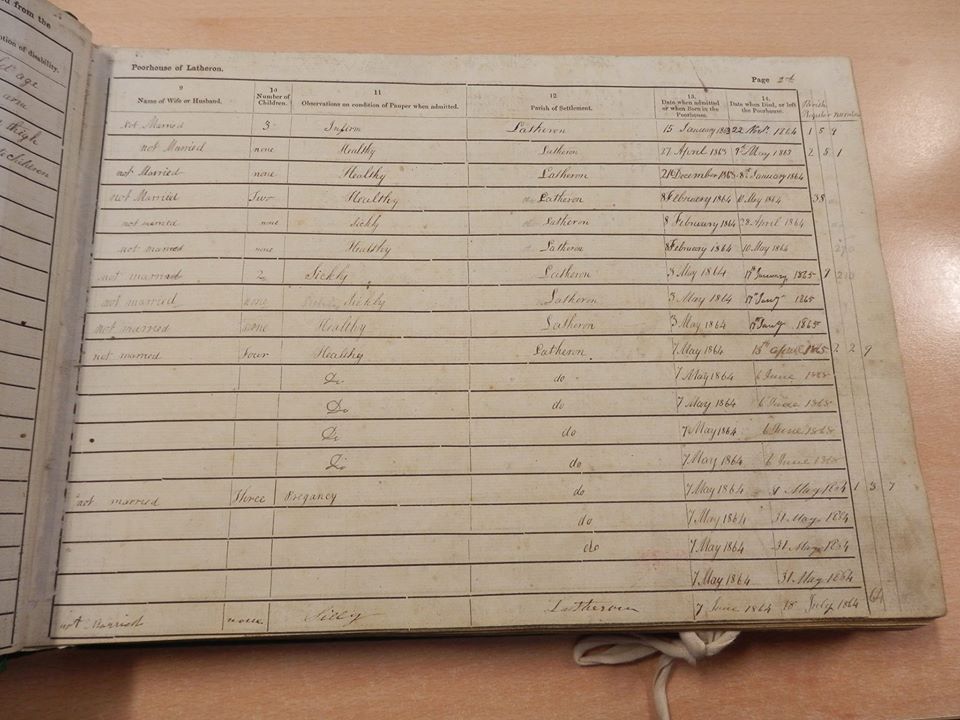 ed from the
ption of disability.
age
arm
thigh
Poorhouse of Latheron. Page
9 10 11 12 13. 14.
Name of Wife or Husband. Number of Children. Observations on condition of Pauper when admitted. Parish of Settlement. Date when admitted or when Born in the Poorhouse. Date when Died, or left the Poorhouse. Parish Register
not Married 3 Infirm Latheron 15 January 1863 22 Novr. 1864 1 5 9
not Married none Healthy Latheron 27 April 1863 May 1863 2 5 1
not Married none Healthy Latheron 21 December 1863 8th January 1864
not Married Two Healthy Latheron 8 February 1864 10 May 1864 38
not married none Sickly Latheron 8 February 1864 28 April 1864
not married none Healthy Latheron 8 February 1864 10 May 1864
not married 2 Sickly Latheron 3 May 1864 17th January 1865 9 210
not married none Sickly Latheron 3 May 1864 17th Jany 1865
not married none Healthy Latheron 3 May 1864 17th Jany 1865
not married Four Healthy Latheron 7 May 1864 15th April 1865 2 2 9
Do do 7 May 1864 6 June 1865
Do do 7 May 1864 6 June 1865
Do do 7 May 1864 6 June 1865
Do do 7 May 1864 6 June 1865
not married Three Pregancy do 7 May 1864 31 May 1864 1 3 7
do 7 May 1864 31 May 1864
do 7 May 1864 31 May 1864
7 May 1864 31 May 1864
not Married none Silly Latheron 7 June 1864 July 1864 64